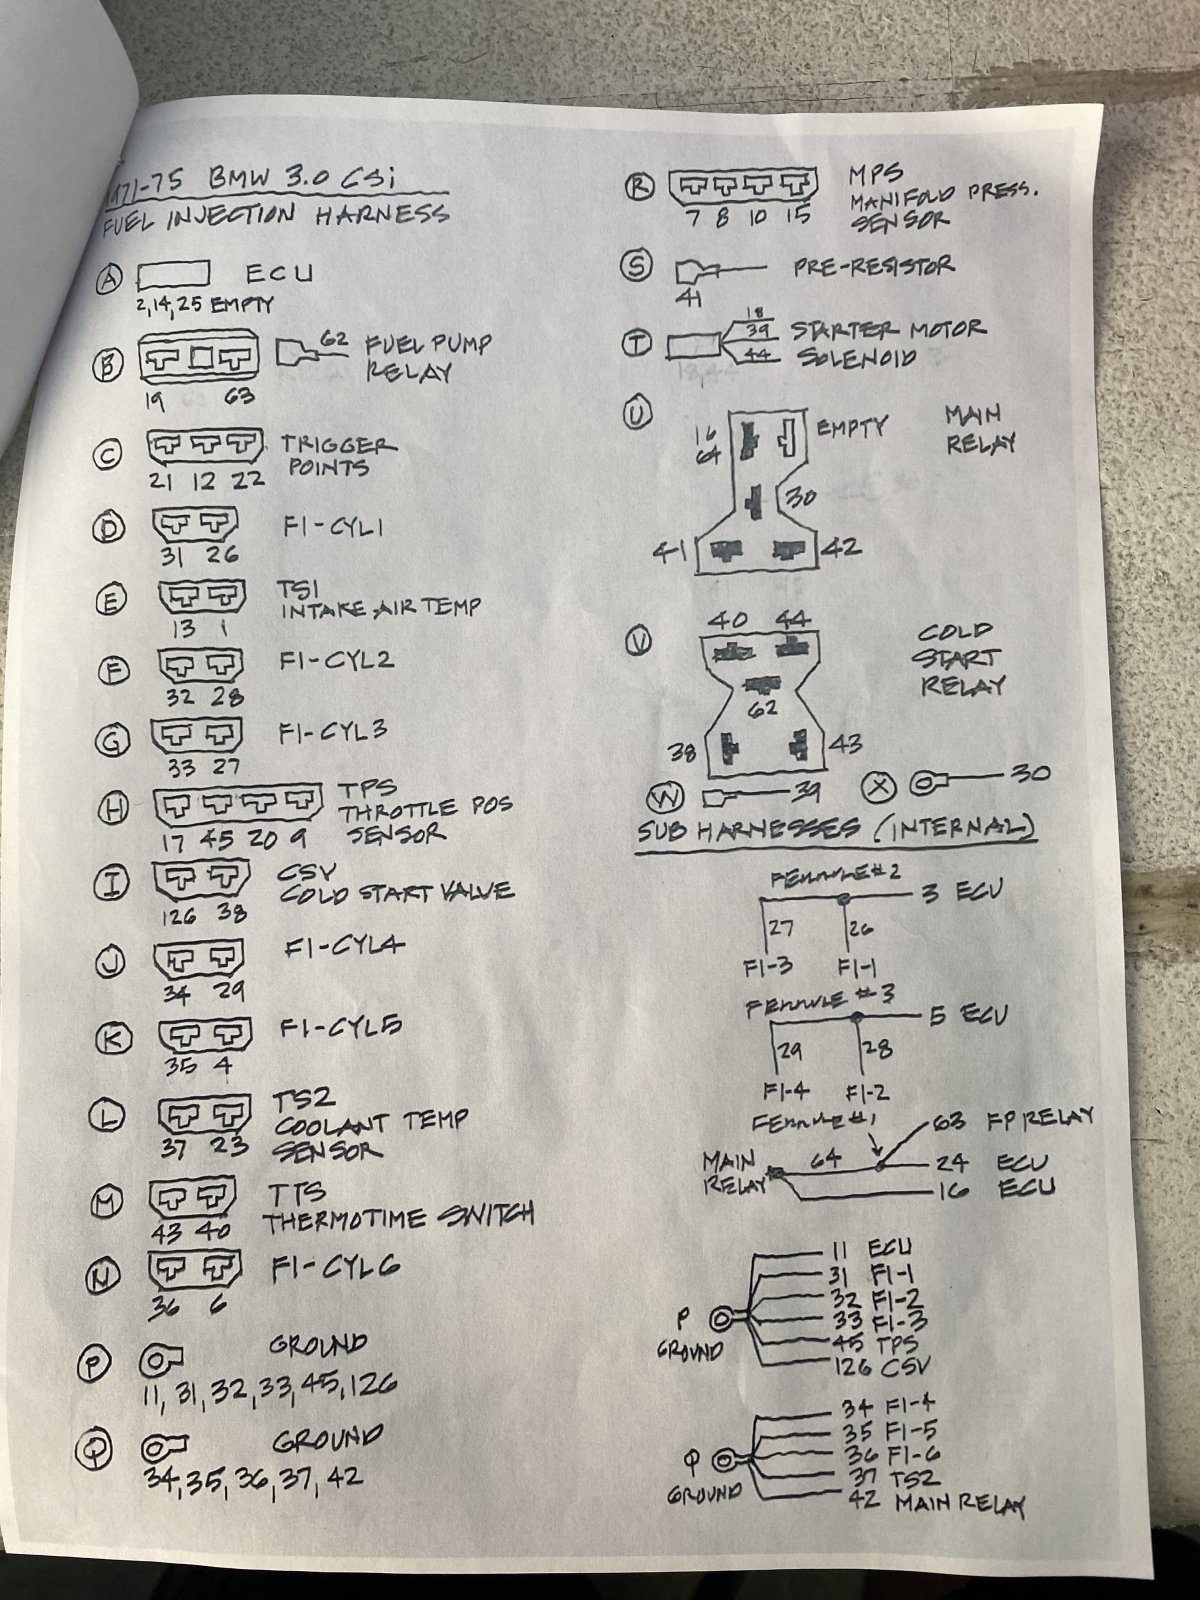 1971-75 BMW 3.0 CSi
FUEL INJECTION HARNESS
A ECU
2,14,25 EMPTY
B 62 FUEL PUMP
RELAY
19 63
C TRIGGER
POINTS
21 12 22
D FI-CYL1
31 26
E TS1
INTAKE AIR TEMP
13 1
F FI-CYL2
32 28
G FI-CYL3
33 27
H TPS
THROTTLE POS
SENSOR
17 45 20 9
I CSV
COLD START VALVE
126 38
J FI-CYL4
34 29
K FI-CYL5
35 4
L TS2
COOLANT TEMP
SENSOR
37 23
M TTS
THERMOTIME SWITCH
43 40
N FI-CYL6
36 6
P GROUND
11, 31, 32, 33, 45, 126
Q GROUND
34, 35, 36, 37, 42
R MPS
MANIFOLD PRESS.
SENSOR
7 8 10 15
S PRE-RESISTOR
41
T 18
39 STARTER MOTOR
44 SOLENOID
U
16 EMPTY MAIN
64 RELAY
30
41 42
V 40 44 COLD
START
RELAY
62
38 43
W 39 X 30
SUB HARNESSES (INTERNAL)
FERRULE #2
3 ECU
27 26
FI-3 FI-1
FERRULE #3
5 ECU
29 28
FI-4 FI-2
FERRULE #1
63 FP RELAY
MAIN 64 24 ECU
RELAY 16 ECU
11 ECU
31 FI-1
32 FI-2
P 33 FI-3
GROUND 45 TPS
126 CSV
34 FI-4
35 FI-5
Q 36 FI-6
GROUND 37 TS2
42 MAIN RELAY